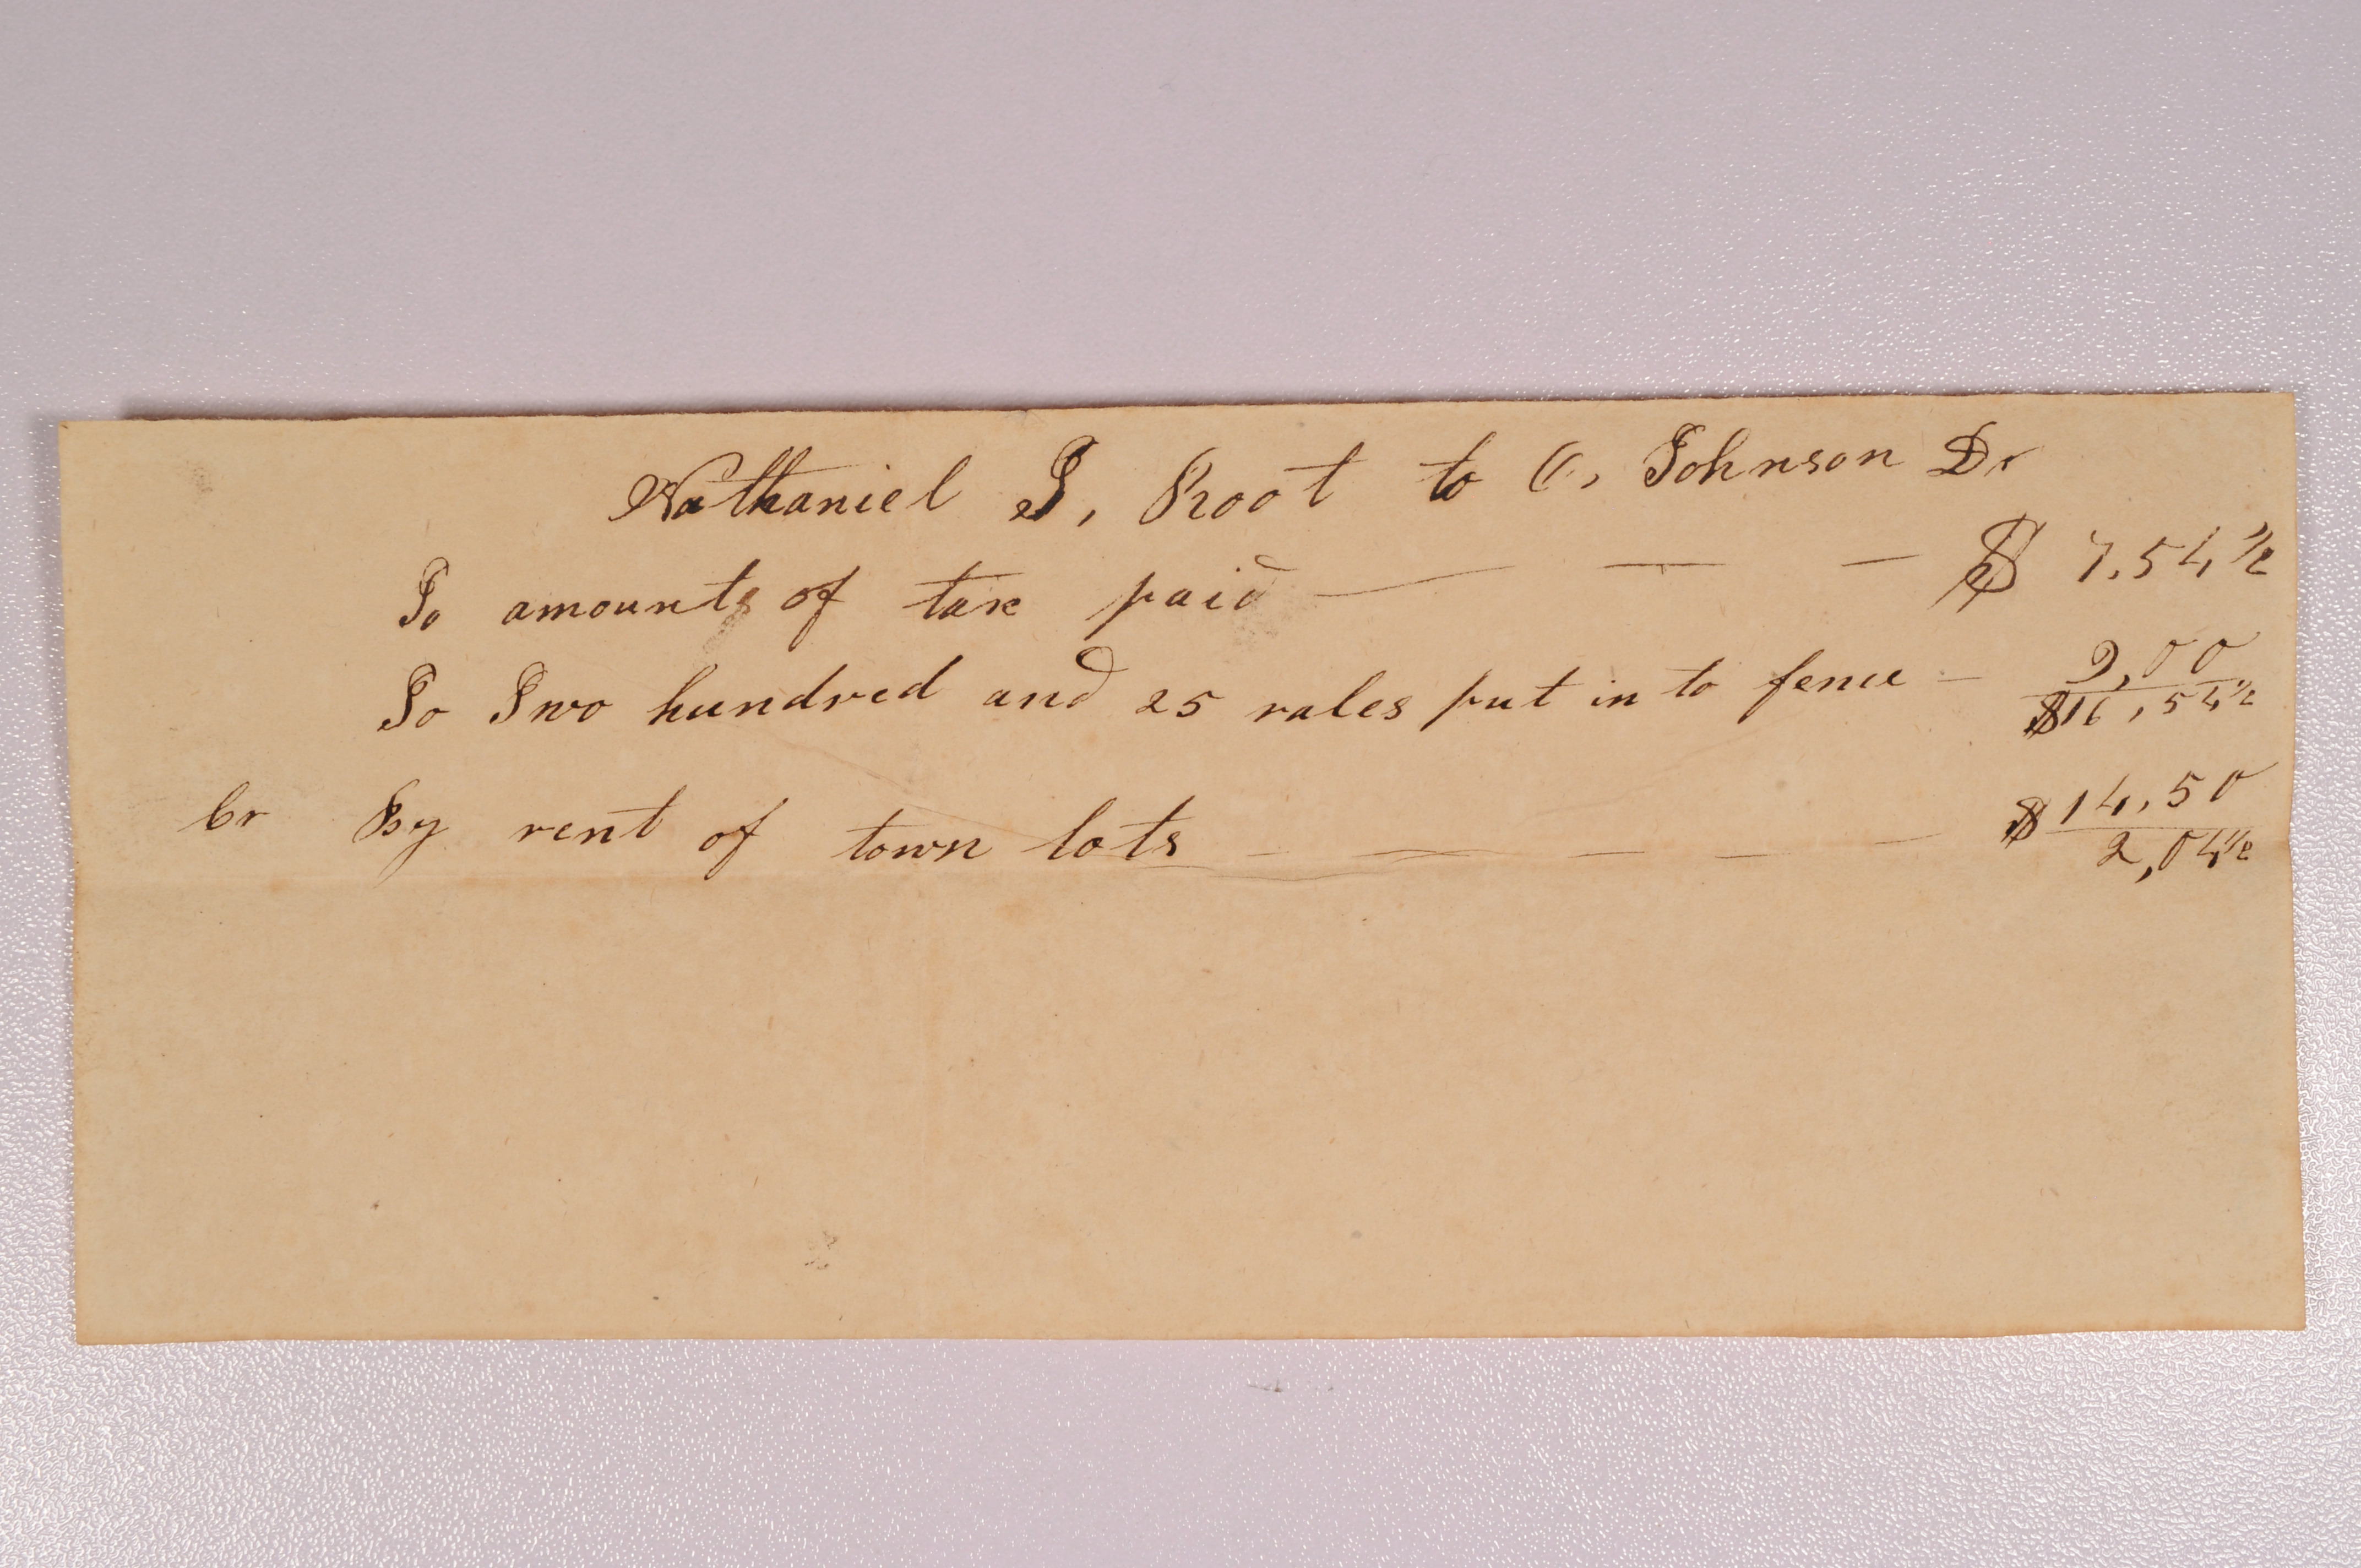 Nathaniel T, Root to C, Johnson Dr
To amount of tax paid — — — $ 7.54 1/2
To Two hundred and 25 rales put in to fence — 9,00
$16,54 1/2
Cr By rent of town lots — — — — — $14,50
2,04 1/2